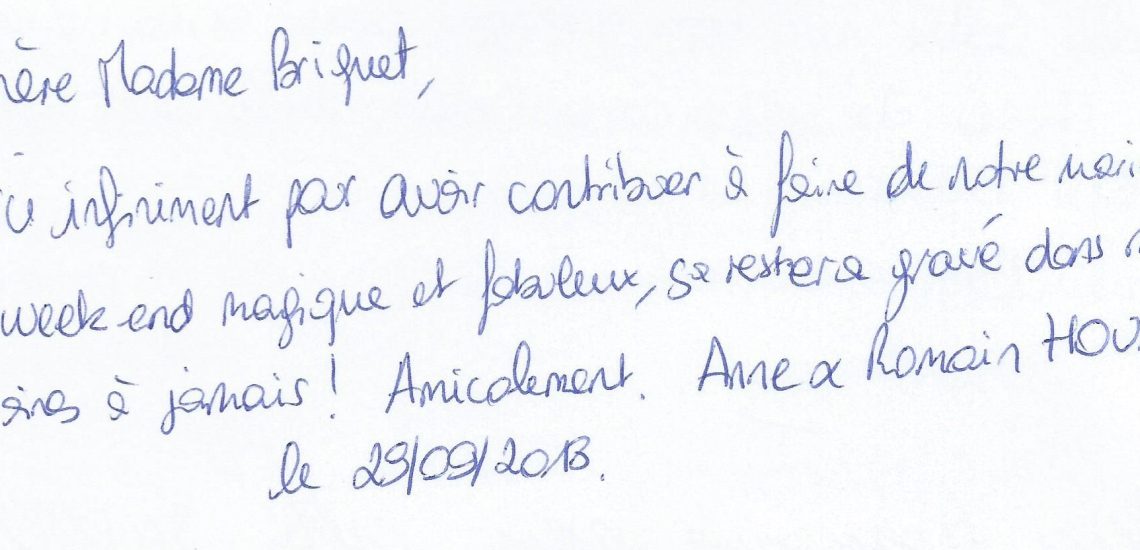 ère Madame Briquet,
infiniment pour avoir contribuer à faire de notre mari
week-end magique et fabuleux, sa restera gravé dans
à jamais ! Amicalement. Anne & Romain HOU
le 29/09/2013.